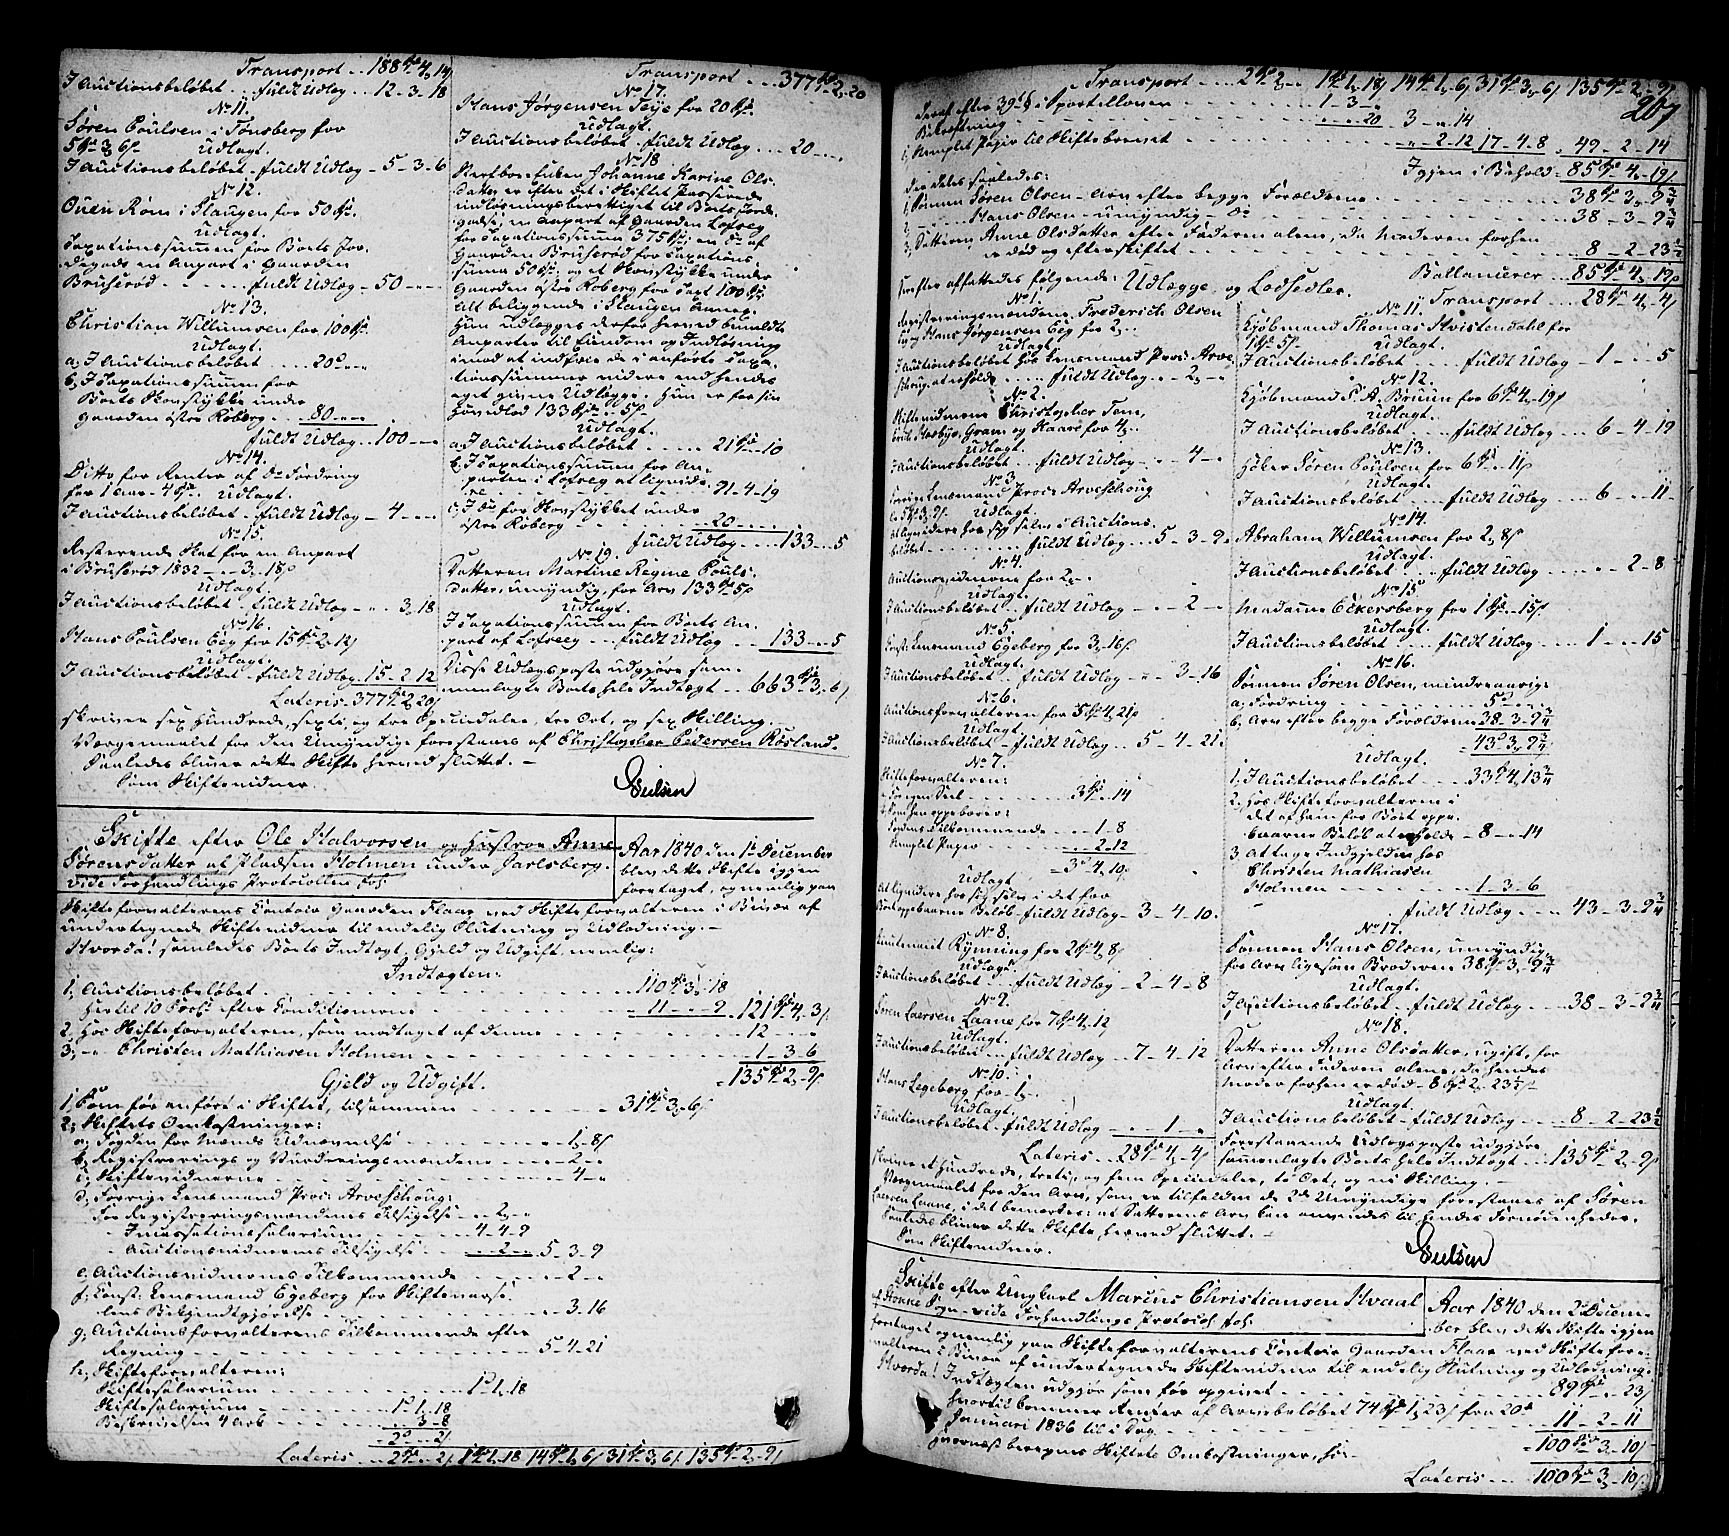 Transport . . 188 4 14
I Auctionsbeløbet . . fuldt Udlæg . . 12 - 3 - 18
No 11.
Søren Poulsen i Tønsberg for
Udlagt.
I Auctionsbeløbet - fuldt Udlæg - 5 - 3 - 6
No 12.
Ouen Røm i Slaugen for 50
Udlagt.
Taxationssummen for Boets Jor-
degods en Anpart i Gaarden
Bruserød . . . . fuldt Udlæg - 50
No 13.
Christian Willumsen for 100
Udlagt.
a, I Auctionsbeløbet . . . 20
b, I Taxationssummen for
Boets Skovstykke under
Gaarden østre Roberg . . 80
fuldt Udlæg . 100
No 14.
Ditto for Renter af do Fordring
for 1 Aar - 4 Udlagt.
I Auctionsbeløbet - fuldt Udlæg - 4
No 15.
Resterende Skat for en Anpart
i Bruserød 1832 - 3 - 18
Udlagt.
I Auctionsbeløbet - fuldt Udlæg - 3, 18
No 16.
Hans Poulsen Eeg for 15 - 2 - 12
Udlagt.
I Auctionsbeløbet - fuldt Udlæg . 15 - 2 - 12
Lateris - 377 2, 20
Transport . . . 377 2, 20
No 17.
Hans Jørgensen Teije for 20
Udlagt.
I Auctionsbeløbet - fuldt Udlæg . . . 20
No 18
Stervboefuken Johanne Karine Ols-
datter er efter det i Skiftet passerede
indløsningsberettiget til Boets Jorde-
gods; en Anpart af Gaarden Lofseeg
for Taxationssumma 375; en do af
Gaarden Bruserød for Taxations-
summa 50 og et Skovstykke under
Gaarden østre Roberg for Taxt 100
alt beliggende i Slaugen Annex.
Hun udlægges derfor herved bemeldte
Anparter til Eiendom og Indløsning
imod at indfrie de i anførte Taxa-
tionssummer videre end hendes
eget givne Udlægge. Hun er for sin
Hovedlod 133 - 5
Udlagt.
a, I Auctionsbeløbet . . . . 21 - 10
b, I Taxationssummen for An-
parten i Lofseeg at liqvide-
re . . . 91 - 4 - 19
c, I do for Skovstykket under
østre Roberg - . . . 20
fuldt Udlæg . . . 133 - 5
No 19.
Datteren Martine Regine Pouls-
datter, umyndig, for Arv 133 5
Udlagt.
I Taxationssummen for Boets An-
part af Lofseeg . . . fuldt Udlæg . . 133 - 5
Disse Udlægsposte udgjøre sam-
menlagte Boets hele Indtægt . . 663 3, 6
skriver sex Hundrede, sexti, og tre Speciedaler, tre Ort, og sex Skilling.
Værgemaalet for den Umyndige forestaaes af Christopher Pedersen Røsland.
Saaledes bliver dette Skifte herved sluttet. -
Som Skiftevidner.
Eielsen
Skifte efter Ole Halvorsen og Hustroe Anne
Sørensdatter af Pladsen Holmen under Jarlsberg.
vide Forhandlings Protocollen fol:
Aar 1840 den 1ste December
blev dette Skifte igjen
foretaget, og nemlig paa
Skifteforvalterens Contoir Gaarden Flaar ved Skifteforvalteren i Bivær af
undertegnede Skiftevidner til endelig Slutning og Udlodning. -
Hvorda! saaledes Boets Indtægt, Gjeld og Udgift, nemlig:
Indtægten:
1, Auctionsbeløbet . . . 110 3, 18
Hertil 10 Proct efter Conditionerne . . . 11 - - 9 121 4, 3
2, Hos Skifteforvalteren, som modtaget af denne . . . 12
3, - Christen Mathiasen Holmen . . . 1 - 3 - 6
135 2, 9
Gjeld og Udgift.
1, Som før anført i Skiftet, tilsammen . . . 31 3, 6
2, Skiftets Omkostninger:
a, Fogden for Mænds Udnævnelse . . . 1, 8
b, Registrerings og Vurderingsmændene . . . 2
c, Skiftevidnerne . . . 4
d, Forrige Lensmand Proc: Arveschoug:
For Registreringsmændenes Tilsigelse . . 2
- Incassationssalarium . . . 4 - 4 - 9
- Auctionsvidnernes Tilsigelse . . . 2 - 5 - 3 - 9
e, Auctionsvidnernes Tilkommende . . . 2
f, Const: Lensmand Egeberg for Skiftevarse-
lens Bekjendtgjørelse . . . 3, 16
g, Auctionsforvalterens Tilkommende efter
Regning . . . 5 - 4 - 21
h, Skifteforvalteren:
Skiftesalarium . . . 1, 18
Skiftesalarium . . . 1 1, 18
Beskrivelsen 4 Ark . . . 3 - 8
Lateris . . 2 - 2 1 1, 18 14 1, 6 31 3, 6 135 2, 9
Transport . . . 2 2 1 1, 18 14 1, 6 31 3, 6 135 2, 9
207
Deraf efter 39 § i Sportelloven . . . 1 - 3
Bekræftning . . . 20 3 - 14
i, Stemplet Papir til Skiftebrevet . . . 2 - 12 17 - 4 - 8 49 - 2 - 14
Igjen i Behold - 85 4, 19
Der deles saaledes:
1, Sønnen Søren Olsen - Arv efter begge Forældrene . . . 38 3, 9 3/4
2, - - Hans Olsen - umyndig - do . . . 38 - 3 - 9 3/4
3, Datteren Anne Olsdatter efter Faderen alene, da Moderen forhen
er død og efterskiftet . . . 8 - 2 - 23 1/2
Ballancerer . . 85 4, 19
Herefter affattedes følgende: Udlægge, og Lodsedler.
No 1.
Registreringsmændene, Frederich Olsen
og Hans Jørgensen Eeg for 2
Udlagt.
I Auctionsbeløbet hos Lensmand Proc: Arve-
schoug, at erholde . . . fuldt Udlæg . . 2
No 2.
Skiftevidnerne Christopher Tem,
Udlagt.
I Auctionsbeløbet . . fuldt Udlæg - 4
No 3
Forrige Lensmand Proc: Arveschoug
Udlagt.
at liqvidere hos sig selv i Auctions-
beløbet . . . fuldt Udlæg . . 5 - 3 - 9
No 4.
Auctionsvidnerne for 2
Udlagt.
I Auctionsbeløbet . . fuldt Udlæg - 2
No 5.
Const: Lensmand Egeberg for 3, 16
Udlagt.
I Auctionsbeløbet . . fuldt Udlæg . . 3 - 16
No 6.
Auctionsforvalteren for 5 4, 21
Udlagt.
I Auctionsbeløbet - fuldt Udlæg . 5 - 4 - 21
No 7.
Skifteforvalteren:
. . . 3 - 14
. . . 1 - 8
Stemplet Papir . . . 2 - 12
3 4, 10
Udlagt.
At liqvidere hos sig selv i det for
Boet oppebaarne Beløb - fuldt Udlæg - 3 - 4 - 10
No 8.
Lieutenant Rynning for 2 4, 8
Udlagt.
I Auctionsbeløbet . . fuldt Udlæg . 2 - 4 - 8
No 9.
Søren Laersen Laane for 7 4, 12
Udlagt.
I Auctionsbeløbet . . . fuldt Udlæg . . 7 - 4 - 12
No 10.
Hans Legeborg for - 1
Udlagt.
I Auctionsbeløbet - fuldt Udlæg . . . 1
Lateris . . 28 4, 4
Transport . . . 28 4, 4
No 11.
Kjøbmand Thomas Hvistendahl for
1 5 Udlagt.
I Auctionsbeløbet . . fuldt Udlæg . . . 1 - 5
No 12.
Kjøbmand S. A. Bruun for 6 4, 19
Udlagt.
I Auctionsbeløbet . . . fuldt Udlæg . . . 6 - 4 - 19
No 13.
Høker Søren Poulsen for 6 11
Udlagt.
I Auctionsbeløbet . . . fuldt Udlæg . . . 6 - - 11
No 14.
Abraham Willumsen for 2, 8
Udlagt.
I Auctionsbeløbet . . fuldt Udlæg . . . 2 - 8
No 15.
Madame Eckersberg for 1 15
Udlagt.
I Auctionsbeløbet . . fuldt Udlæg . . . 1 - - 15
No 16.
Sønnen Søren Olsen, mindreaarig:
a, Fordring . . . 5
b, Arv efter begge Forældrene 38 - 3 - 9 3/4
43 3, 9 3/4
Udlagt.
1. I Auctionsbeløbet . . . 33 4, 13 3/4
2, Hos Skifteforvalteren i
det af ham for Boet oppe-
baarne Beløb at erholde - 8 - - 14
3, at tage Indgjelden hos
Christen Mathiasen
Holmen . . . 1 - 3 - 6
fuldt Udlæg . . . 43 - 3 - 9 3/4
No 17.
Sønnen Hans Olsen, umyndig,
for Arv ligesom Broderen 38 3, 9 3/4
Udlagt.
I Auctionsbeløbet . . fuldt Udlæg . . . 38 - 3 - 9 3/4
No 18.
Datteren Anne Olsdatter, ugift, for
Arv efter Faderen alene, da hendes
Moder forhen er død - 8 2, 23 1/2
Udlagt.
I Auctionsbeløbet - fuldt Udlæg . . . 8 - 2 - 23 1/2
Forestaaende Udlægsposte udgjøre
sammenlagte Boets hele Indtægt . . 135 - 2, 9
skriver et Hundrede, treti, og fem Speciedaler, to Ort, og ni Skilling. -
Værgemaalet for den Arv, som er tilfalden de 2de Umyndige forestaaes af Søren
Laersen Laane, i det bemærkes: at Datterens Arv kan anvendes til hendes Fornødenheder.
Saaledes bliver dette Skifte herved sluttet. -
Som Skiftevidner.
Eielsen
Skifte efter Ungkarl Marcus Christiansen Hvaal
af Stokke Sogn - vide Forhandlings Protocol fol:
Aar 1840 den 2den Decem-
ber blev dette Skifte igjen
foretaget og nemlig paa Skifteforvalterens Contoir Gaarden Flaar ved Skiftefor-
valteren i Bivær af undertegnede Skiftevidner til endelig Slutning og Udlodning.
Hvorda! Indtægten udgjør som før opgivet . . . 89 - 23
Hvortil kommer Renter af Arvebeløbet 74 1, 23 fra 20de
Januari 1836 til i Dag . . . 11 - 2 - 11
100 3, 10
Hvornæst beregnes Skiftets Omkostninger, saa-
Lateris . . . 100 3, 10